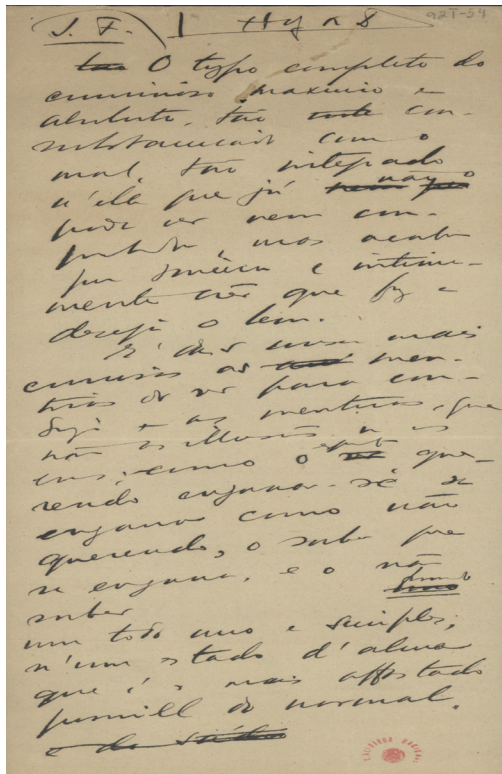 92T-54
J. F.
O typo completo do
criminoso maximo e
absoluto, tão con-
substanciado com o
mal, tão integrado
n'elle que já não o
pode ver nem com-
, mas acaba
por sincera e intima-
mente crêr que faz e
deseja o bem.
mais
curiosas as men-
tiras do ser para com-
sigo e as mentiras, que
não as illusões a es
como o que-
rendo enganar-se se
engana como não
querendo, o saber que
se engana, e o não
saber
um todo uno e simples,
n'um estado d'alma
que é o mais affastado
possivel do normal.
e da saúde